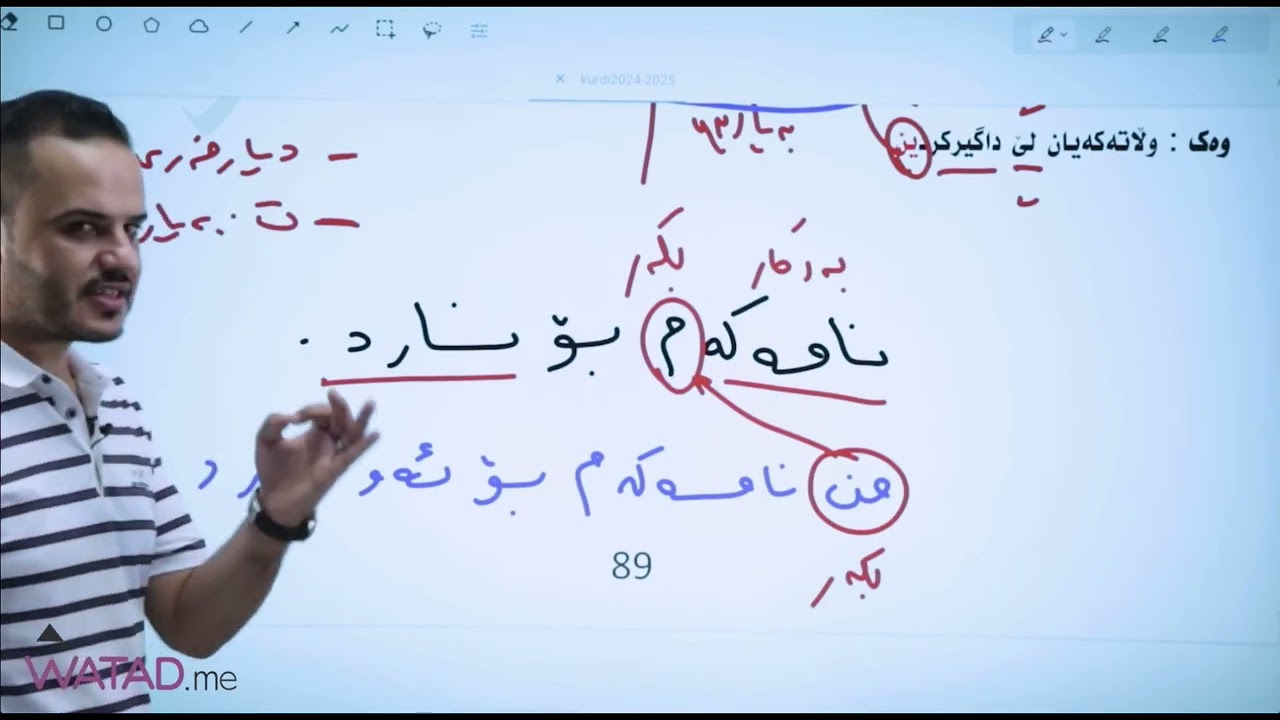 kurdi2024-2025
وەک : وڵاتەکەیان لێ داگیرکردین
بەیار
- دیارخەری
- ت . بەیار
بەرکار بکەر
نامەکەم بۆ نارد .
من نامەکەم بۆ ئەو رد
بکەر
89
WATAD.me